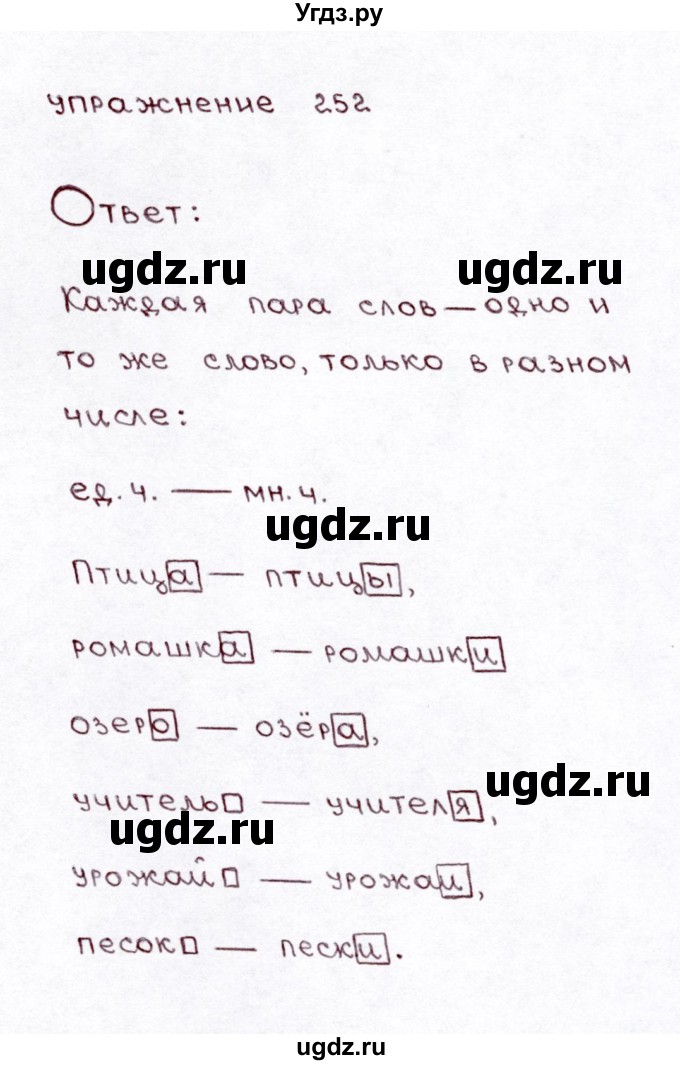 Угдз.ру
упражнение 252
Ответ:
ugdz.ru ugdz.ru
Каждая пара слов — одно и
то же слово, только в разном
числе:
ед. ч. — мн. ч.
ugdz.ru
Птица — птицы,
ромашка — ромашки
озеро — озёра,
ugdz.ru
учитель — учителя,
ugdz.ru
урожай — урожаи,
песок — пески.
ugdz.ru